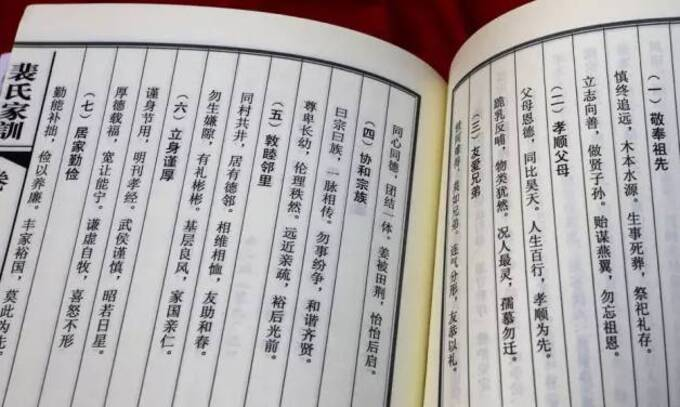 （一）敬奉祖先
慎终追远，木本水源。生事死葬，祭祀礼存。
立志向善，做贤子孙。贻谋燕翼，勿忘祖恩。
（二）孝顺父母
父母恩德，同比昊天。人生百行，孝顺为先。
跪乳反哺，物类犹然。况人最灵，孺慕勿迁。
（三）友爱兄弟
世间难得，莫如兄弟。连气分形，友恭以礼。
同心同德，团结一体。姜被田荆，怡怡后启。
（四）协和宗族
曰宗曰族，一脉相传。勿事纷争，和谐齐贤。
尊卑长幼，伦理秩然。远近亲疏，裕后光前。
（五）敦睦邻里
同村共井，居有德邻。相维相恤，友助和春。
勿生嫌隙，有礼彬彬。基层良风，家国亲仁。
（六）立身谨厚
谨身节用，明刊孝经。武侯谨慎，昭若日星。
厚德载福，宽让能宁。谦虚自牧，喜怒不形
（七）居家勤俭
勤能补拙，俭以养廉。丰家裕国，莫此为先。
裴氏家训